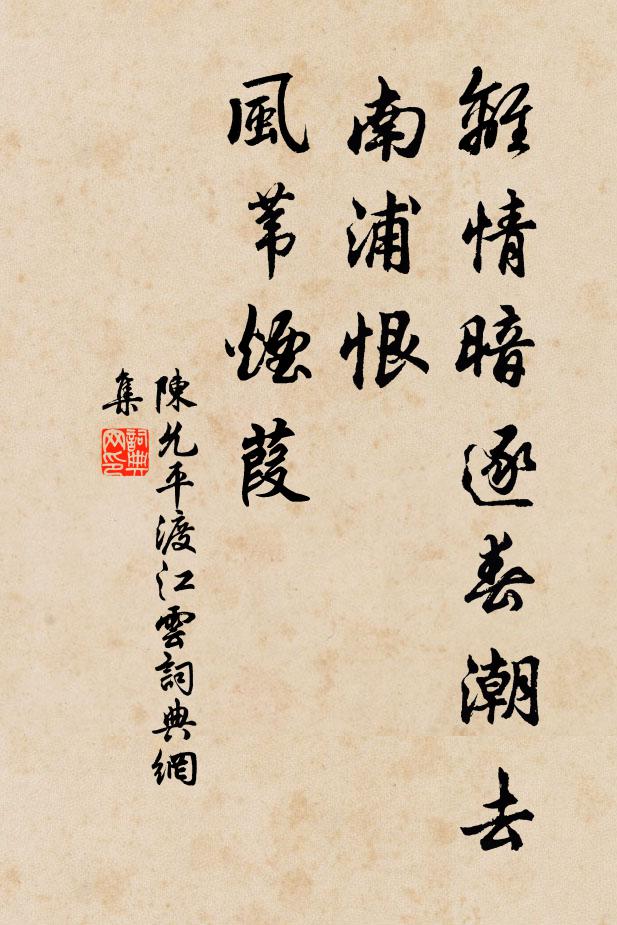 離情暗逐春潮去
南浦恨
風苇煙葭
陳允平渡江雲詞典網
集
詞典
网印